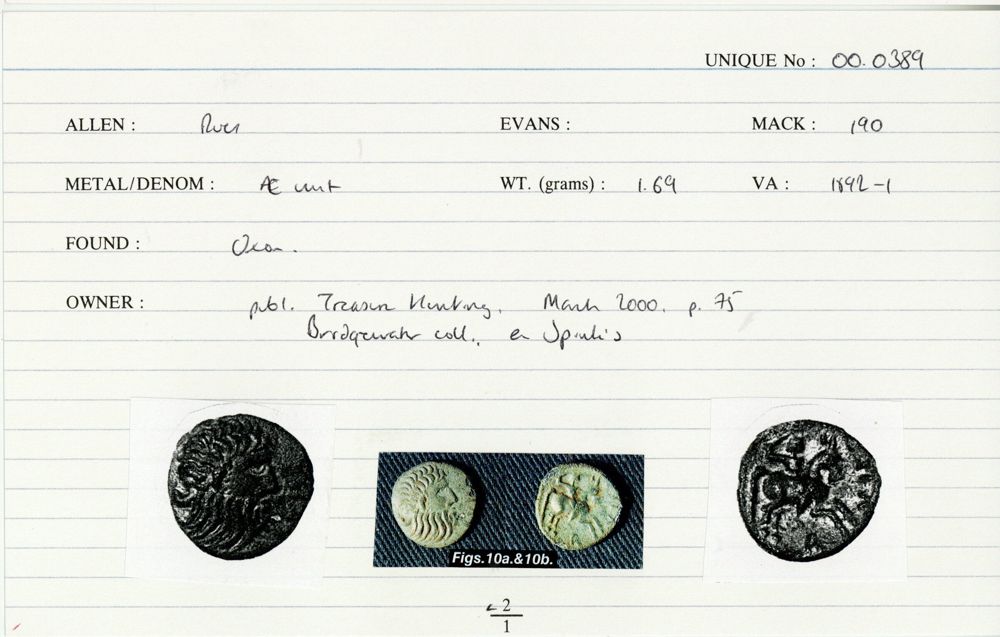 UNIQUE No : 00.0389
ALLEN : Rues EVANS : MACK : 190
METAL/DENOM : Æ unit WT. (grams) : 1.69 VA : 1892-1
FOUND : Oxon.
OWNER : publ. Treasure Hunting, March 2000, p. 75
Bridgewater coll., ex Spink's
Figs.10a.&10b.
2
1